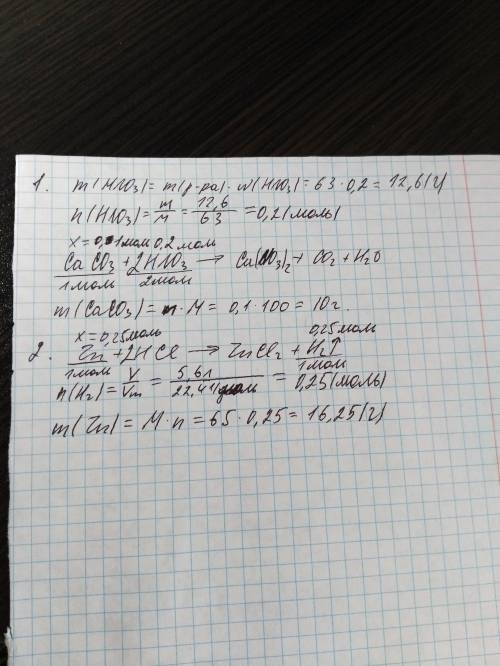 1. m(HNO₃) = m(р-ра) · w(HNO₃) = 63 · 0,2 = 12,6(г)
n(HNO₃) = m/M = 12,6/63 = 0,2(моль)
x = 0,1 моль 0,2 моль
CaCO₃ + 2HNO₃ → Ca(NO₃)₂ + CO₂ + H₂O
1моль 2моль
m(CaCO₃) = n · M = 0,1 · 100 = 10г.
x = 0,25моль 0,25моль
2. Zn + 2HCl → ZnCl₂ + H₂↑
1моль 1моль
n(H₂) = V/Vm = 5,6л/22,4л/моль = 0,25(моль)
m(Zn) = M · n = 65 · 0,25 = 16,25(г)